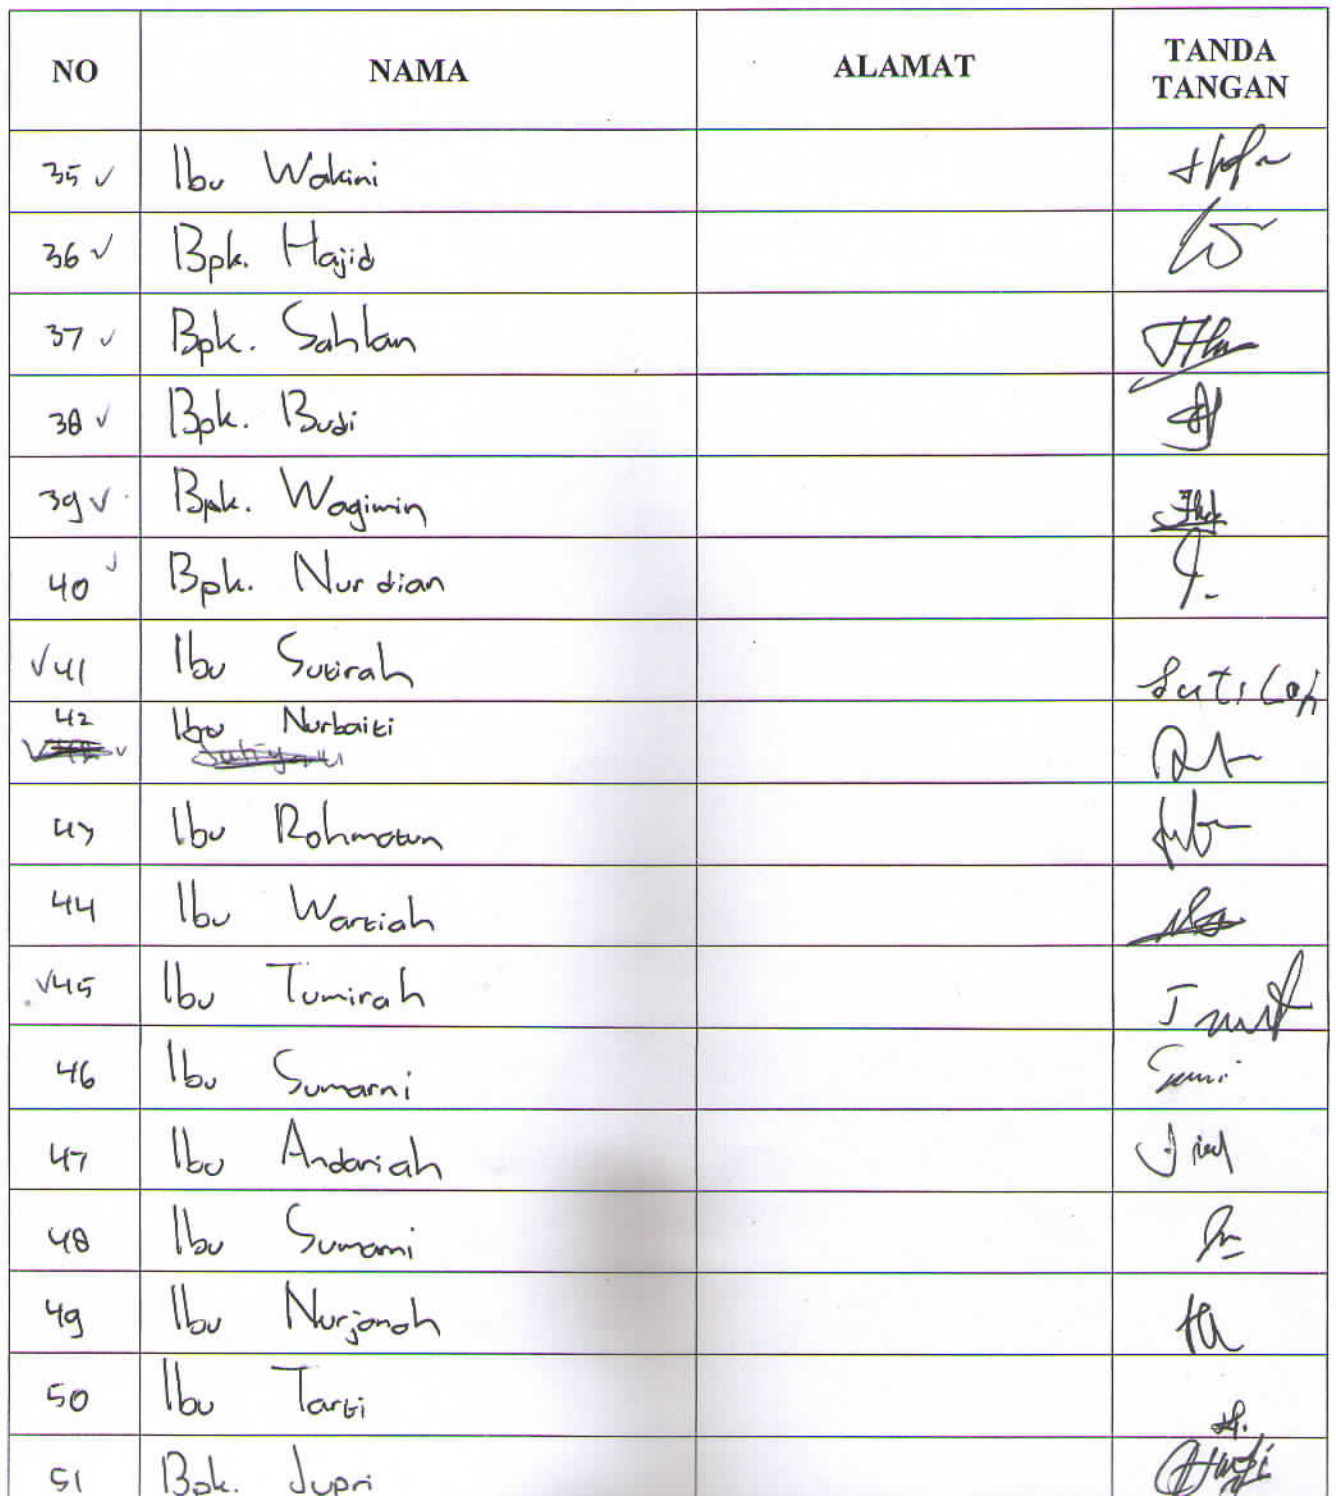 NO NAMA ALAMAT TANDA TANGAN
35 ✓ Ibu Wakini
36 ✓ Bpk. Hajid
37 ✓ Bpk. Sahlan
38 ✓ Bpk. Budi
39 ✓ Bpk. Wagimin
40 ✓ Bpk. Nurdian
✓ 41 Ibu Sutirah
42 Ibu Nurbaiti
43 Ibu Rohmatun
44 Ibu Wartiah
✓ 45 Ibu Tumirah
46 Ibu Sumarni
47 Ibu Andariah
48 Ibu Sumarni
49 Ibu Nurjanah
50 Ibu Tarti
51 Bpk. Jupri